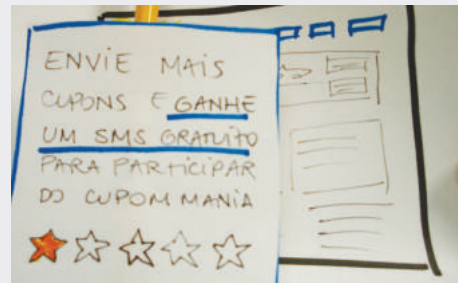 ENVIE MAIS
CUPONS E GANHE
UM SMS GRATUITO
PARA PARTICIPAR
DO CUPOM MANIA